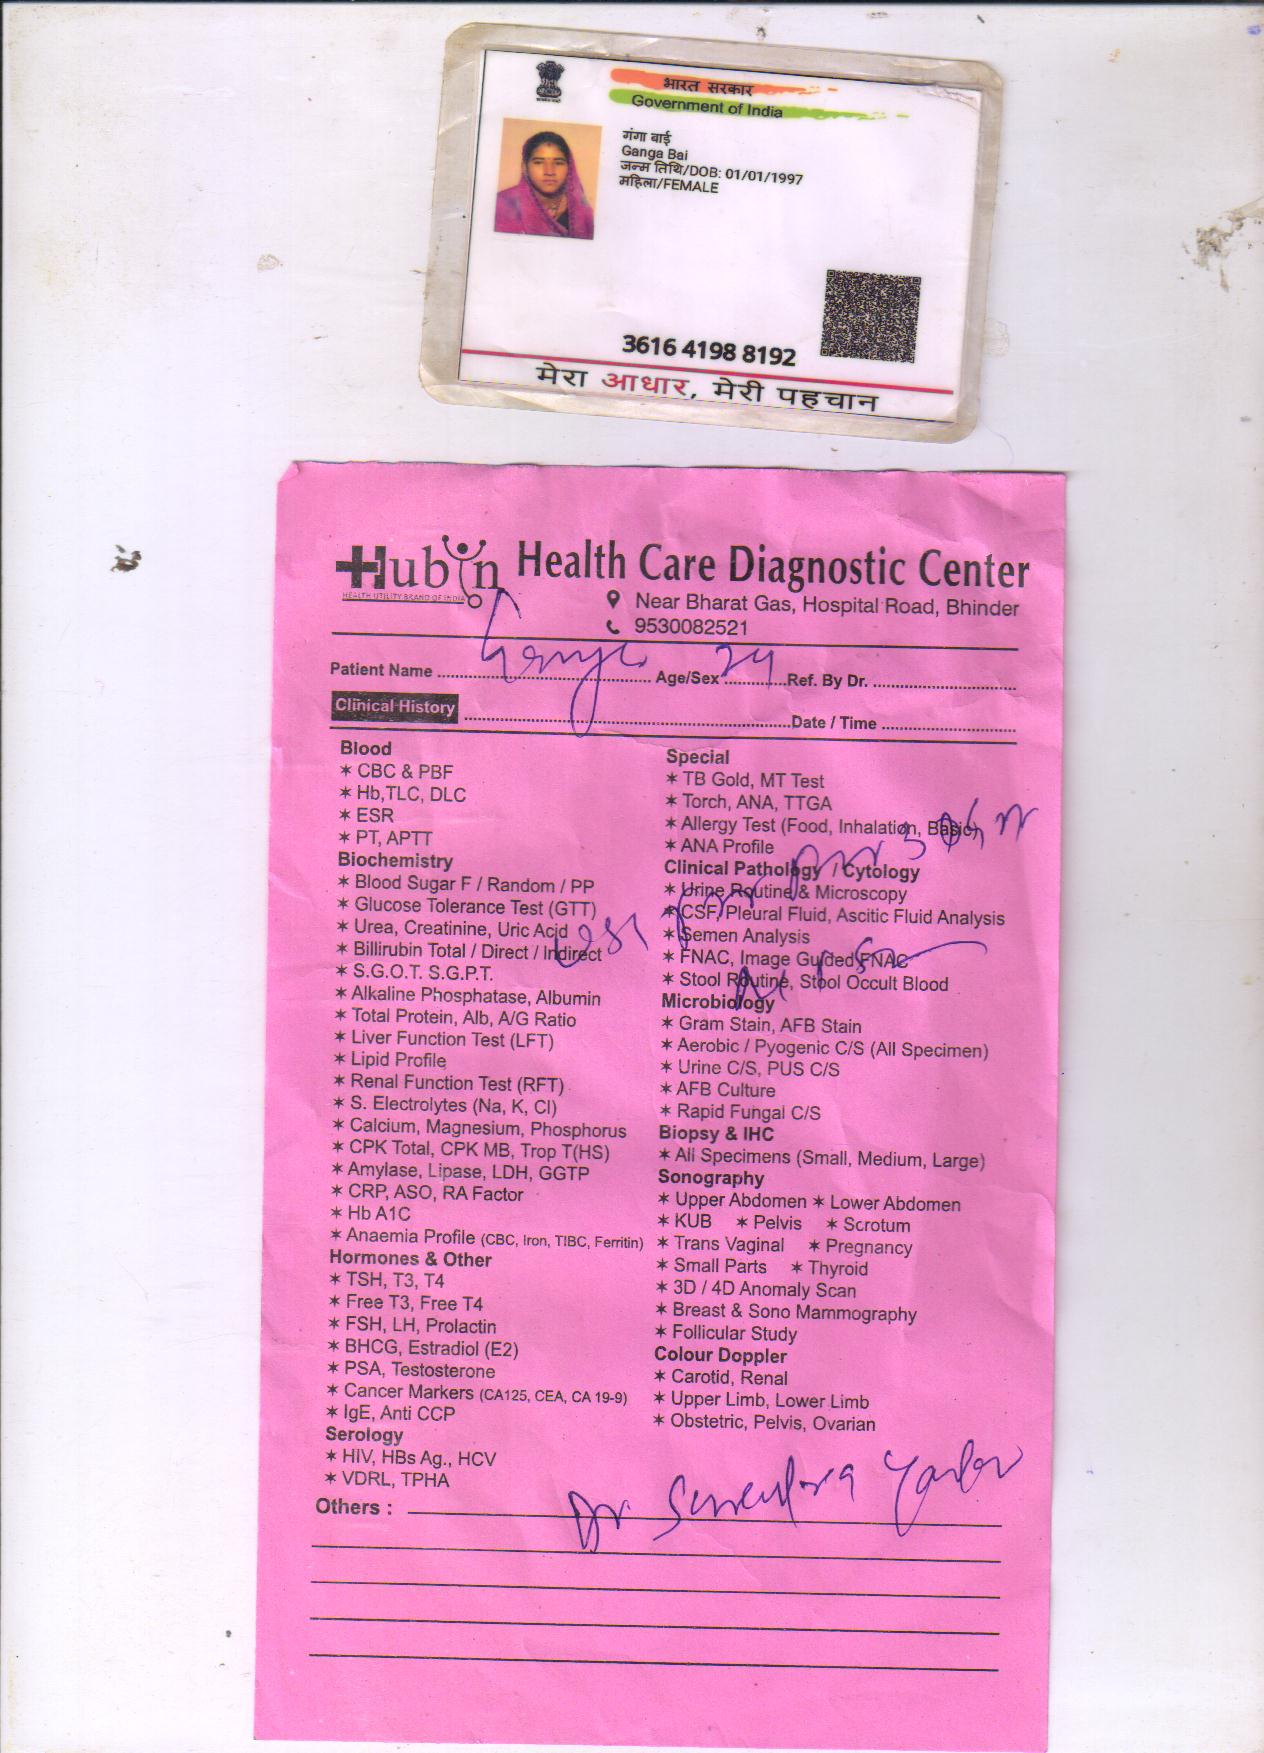 भारत सरकार
Government of India
गंगा बाई
Ganga Bai
जन्म तिथि/DOB: 01/01/1997
महिला/FEMALE
3616 4198 8192
मेरा आधार, मेरी पहचान
Hubin Health Care Diagnostic Center
HEALTH UTILITY BRAND OF INDIA
Near Bharat Gas, Hospital Road, Bhinder
9530082521
Patient Name Age/Sex 24 Ref. By Dr.
Clinical History Date / Time
Blood
✶ CBC & PBF
✶ Hb,TLC, DLC
✶ ESR
✶ PT, APTT
Biochemistry
✶ Blood Sugar F / Random / PP
✶ Glucose Tolerance Test (GTT)
✶ Urea, Creatinine, Uric Acid
✶ Billirubin Total / Direct / Indirect
✶ S.G.O.T. S.G.P.T.
✶ Alkaline Phosphatase, Albumin
✶ Total Protein, Alb, A/G Ratio
✶ Liver Function Test (LFT)
✶ Lipid Profile
✶ Renal Function Test (RFT)
✶ S. Electrolytes (Na, K, Cl)
✶ Calcium, Magnesium, Phosphorus
✶ CPK Total, CPK MB, Trop T(HS)
✶ Amylase, Lipase, LDH, GGTP
✶ CRP, ASO, RA Factor
✶ Hb A1C
✶ Anaemia Profile (CBC, Iron, TIBC, Ferritin)
Hormones & Other
✶ TSH, T3, T4
✶ Free T3, Free T4
✶ FSH, LH, Prolactin
✶ BHCG, Estradiol (E2)
✶ PSA, Testosterone
✶ Cancer Markers (CA125, CEA, CA 19-9)
✶ IgE, Anti CCP
Serology
✶ HIV, HBs Ag., HCV
✶ VDRL, TPHA
Special
✶ TB Gold, MT Test
✶ Torch, ANA, TTGA
✶ Allergy Test (Food, Inhalation, Basic)
✶ ANA Profile
Clinical Pathology / Cytology
✶ Urine Routine & Microscopy
✶ CSF, Pleural Fluid, Ascitic Fluid Analysis
✶ Semen Analysis
✶ FNAC, Image Guided FNAC
✶ Stool Routine, Stool Occult Blood
Microbiology
✶ Gram Stain, AFB Stain
✶ Aerobic / Pyogenic C/S (All Specimen)
✶ Urine C/S, PUS C/S
✶ AFB Culture
✶ Rapid Fungal C/S
Biopsy & IHC
✶ All Specimens (Small, Medium, Large)
Sonography
✶ Upper Abdomen ✶ Lower Abdomen
✶ KUB ✶ Pelvis ✶ Scrotum
✶ Trans Vaginal ✶ Pregnancy
✶ Small Parts ✶ Thyroid
✶ 3D / 4D Anomaly Scan
✶ Breast & Sono Mammography
✶ Follicular Study
Colour Doppler
✶ Carotid, Renal
✶ Upper Limb, Lower Limb
✶ Obstetric, Pelvis, Ovarian
Others :
Dr Surendra Yadav